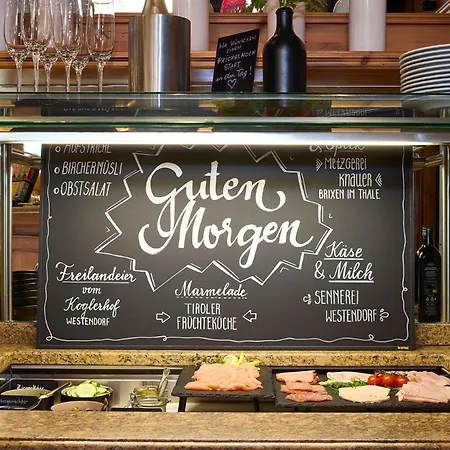 WIR WÜNSCHEN
EINEN
PRICKELNDEN
START
in den TAG!
AUFSTRICHE
BIRCHERMÜSLI
OBSTSALAT
Guten
Morgen
& SPECK
METZGEREI
KNALLER
BRIXEN IM THALE
Freilandeier
vom
Koglerhof
WESTENDORF
Marmelade
TIROLER
FRÜCHTEKÜCHE
Käse
& Milch
SENNEREI
WESTENDORF
Ziegenkäse